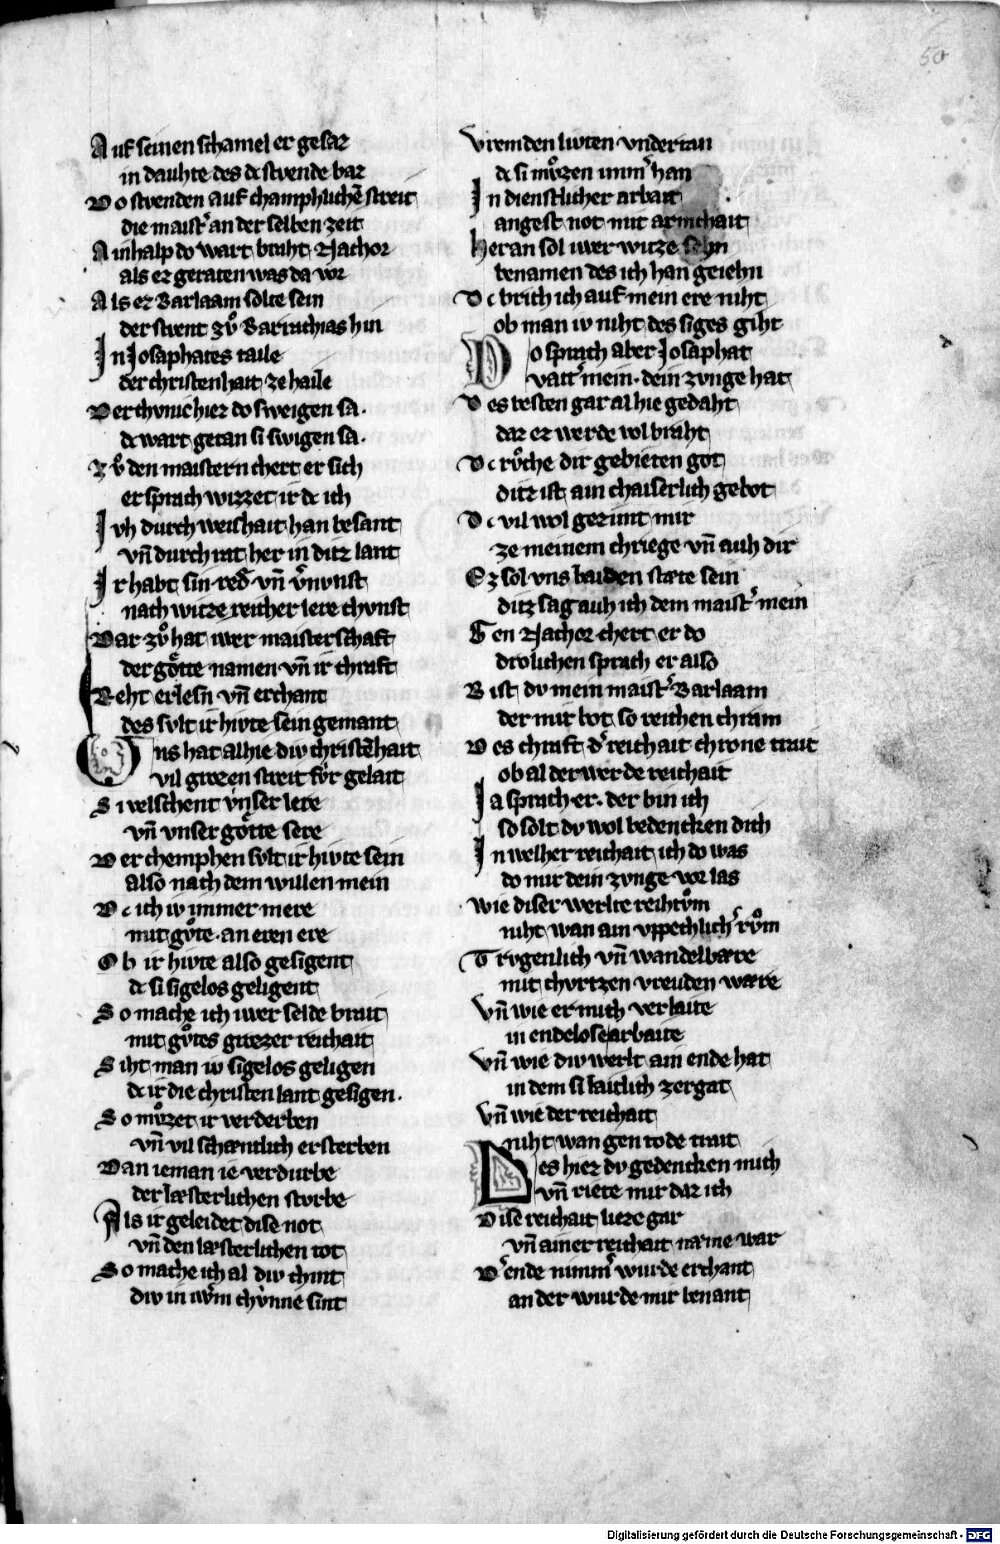 50
Auf seinen schamel er gesaz
in dauhte des dc stvende baz
Do stvenden auf champhlichē streit
die maist͛ an der selben zeit
Ainhalp do wart braht Nachor
als ez geraten was da vor
Als ez Barlaam solte sein
der stvent zvͦ Barrachias hin
In Josaphates taile
der christenhait ze haile
Der chvnic hiez do sweigen sa.
dc wart getan si swigen sa.
Zvͦ den maistern chert er sich
er sprach wizzet ir dc ich
Ivh durch weishait han besant
vn̄ durch rat her in ditz lant
Ir habt sin red vn̄ v͛nvnst
nach witze reicher lere chvnst
Dar zvͦ hat iwer maisterschaft
der goͤtte namen vn̄ ir chraft
Reht erlesn vn̄ erchant
des svlt ir hivte sein gemant
Vns hat alhie div christēhait
vil grozen streit fvͤr gelait
Si velschent vnser lere
vn̄ vnser goͤtte sere
Der chemphen svlt ir hivte sein
also nach dem willen mein
Dc ich iv immer mere
mit gvͦte. an eren ere
Ob ir hivte also gesigent
dc si sigelos geligent
So mache ich iwer selde brait
mit gvͦtes grozer reichait
Siht man iv sigelos geligen
dc ir die christen lant gesigen.
So mvͦzet ir verderben
vn̄ vil schæntlich ersterben
Dan ieman ie verdurbe
der læsterlichen storbe
Als ir geleidet dise not
vn̄ den læsterlichen tot
So mache ich al div chint
div in iwͤrm chvnne sint
Vremden livten vndertan
dc si mvͦzen imm͛ han
In dienstlicher arbait
angest not mit armchait
Her an sol iwer witze sehn
benamen des ich han geiehn
Dc brich ich auf mein ere niht
ob man iv niht des siges giht
Do sprach aber Josaphat
vatt͛ mein. dein zvnge hat
Des besten gar al hie gedaht
daz ez werde vol braht
Dc rvͦche dir gebieten got
ditz ist ain chaiserlich gebot
Dc vil wol gezimt mir
ze meinem chriege vn̄ auh dir
Ez sol vns baiden stæte sein
ditz sag auh ich dem maist͛ mein
Gen Nachor chert er do
drolichen sprach er also
Bist dv mein maist͛ Barlaam
der mir bot so reichen chram
Des chraft d͛ reichait chrone trait
ob al der werlde reichait
Ja sprach er. der bin ich
so solt dv wol bedencken dich
In welher reichait ich do was
do mir dein zvnge vor las
Wie diser werlte reihtvͦm
niht wan ain vppechlich͛ rvͦm
Trvgenlich vn̄ wandelbære
mit chvrtzen vreuden wære
Vn̄ wie er mich verlaite
in endelose arbaite
Vn̄ wie div werlt ain ende hat
in dem si laitlich zergat
Vn̄ wie der reichait
niht wan gen tode trait
Des hiez dv gedencken mich
vn̄ riete mir daz ich
Dise reichait lieze gar
vn̄ ainer reichait næme war
D͛ ende nimm͛ wurde erchant
an der wurde mir benant
Digitalisierung gefördert durch die Deutsche Forschungsgemeinschaft - DFG